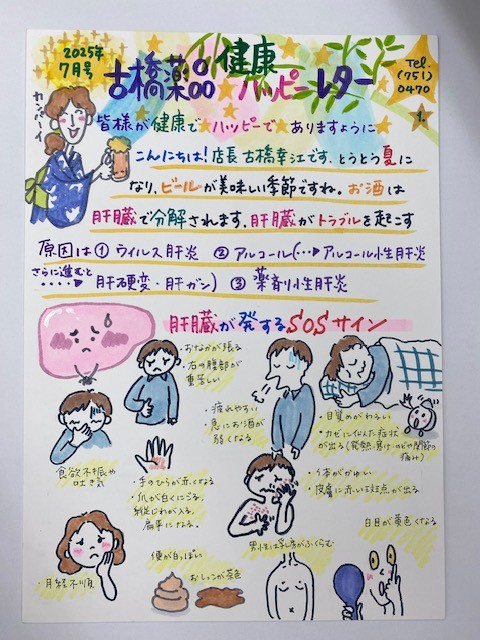 2025年
7月号
健康
古橋薬品★ハッピーレター
Tel.
(751)
0470
カンパーイ
1.
皆様が健康で★ハッピーで★ありますように
こんにちは!店長古橋幸江です.とうとう夏に
なり,ビールが美味しい季節ですね。お酒は
肝臓で分解されます.肝臓がトラブルを起こす
原因は①ウイルス肝炎 ②アルコール(…▶アルコール性肝炎
さらに進むと
‥‥▶肝硬変・肝ガン) ③薬剤性肝炎
肝臓が発するSOSサイン
・おなかが張る
・右の腹部が
重苦しい
・疲れやすい
・急にお酒が
弱くなる
・目覚めがわるい
・カゼに似た症状
が出る(発熱・寒け・のどや関節の
痛み)
食欲不振や
吐き気
・手のひらが赤くなる
・爪が白くにごる。
縦じわが入る。
扁平になる。
・体がかゆい
・皮膚に赤い斑点が出る
白目が黄色くなる
男性は乳房がふくらむ
・月経不順
便が白っぽい
おしっこが茶色